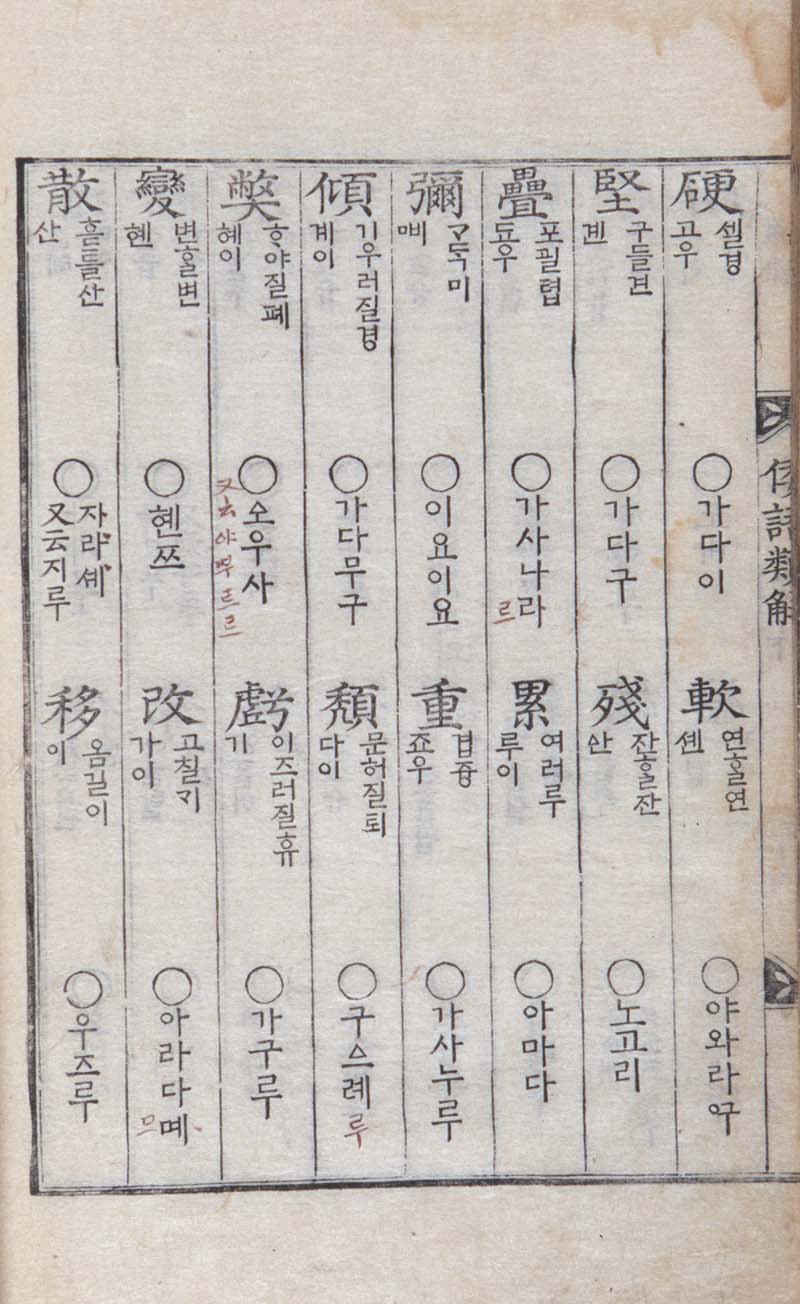 倭語類解
硬 셀경 고우 ○가다이 軟 연ᄒᆞᆯ연 셴 ○야와라구
堅 구들견 겐 ○가다구 殘 잔ᄒᆞᆯ잔 산 ○노고리
疊 포필텹 됴우 ○가사나라 르 累 여러루 루이 ○아마다
彌 ᄀᆞ득미 ᄜᅵ ○이요이요 重 겹즁 죠우 ○가사누루
傾 기우러질경 계이 ○가다무구 頹 문허질퇴 다이 ○구스례 루
獘 ᄒᆞ야질폐 혜이 ○소우사 又云야ᄲᅮ르르 虧 이즈러질휴 기 ○가구루
變 변ᄒᆞᆯ변 헨 ○헨쯔 改 고칠ᄀᆡ 가이 ○아라다몌 므
散 흗틀산 산 ○자라셰 又云지루 移 옴길이 이 ○우즈루